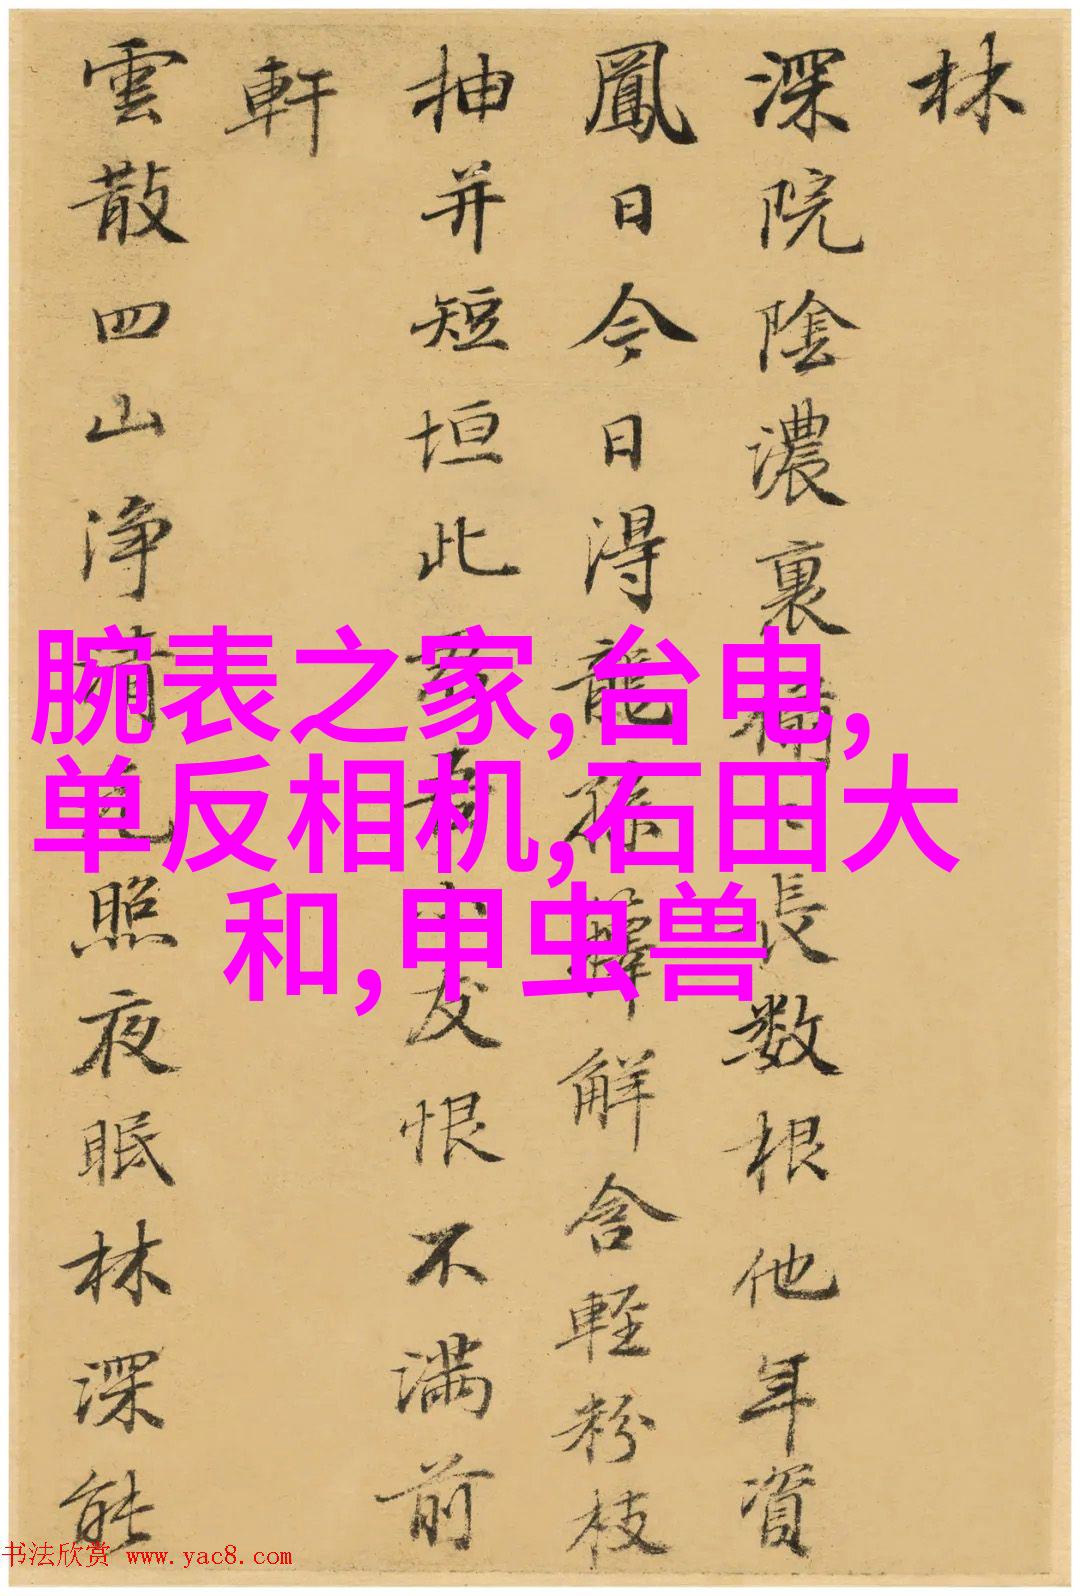 林
深院陰濃裏
長数根他年資
鳳日今日得龍孫籜解含輕粉枝
抽并短垣此
友恨不满前
軒
雲散四山净
照夜眠林深能
腕表之家,台电,
单反相机,石田大
和,甲虫兽
书法欣赏 www.yac8.com